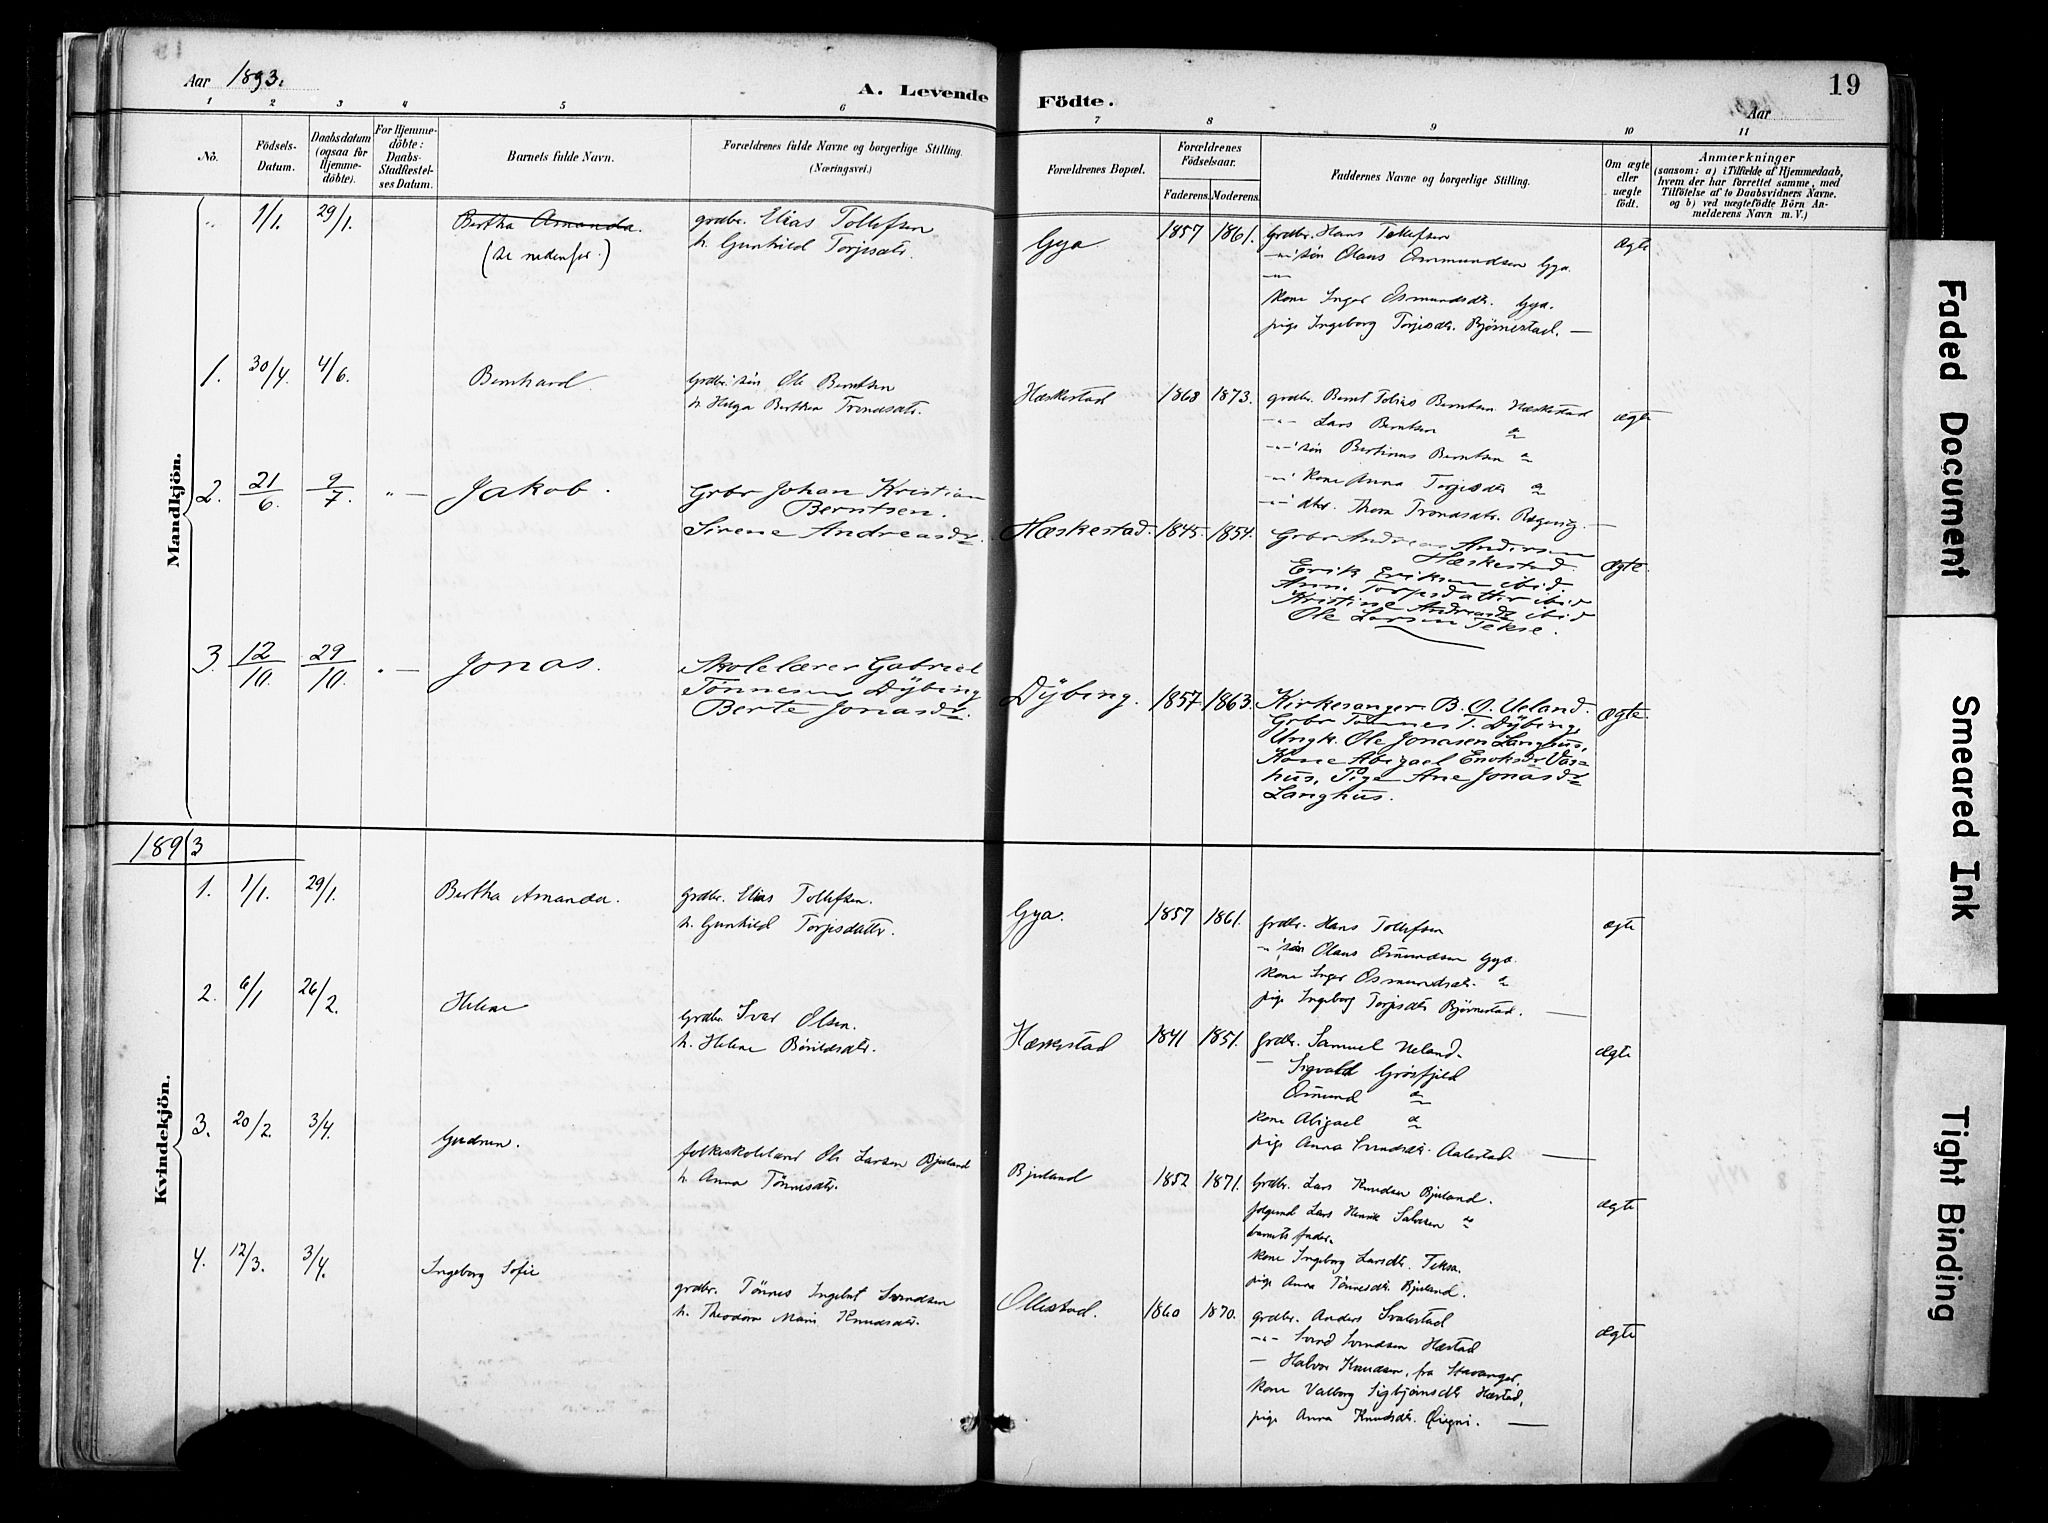 Aar 1893.
A. Levende Födte.
19
Aar
1 2 3 4 5 6 7 8 9 10 11
No.
Födsels-
Datum.
Daabsdatum
(ogsaa for
Hjemme-
döbte).
For Hjemme-
döbte:
Daabs-
Stadfæstel-
ses Datum.
Barnets fulde Navn.
Forældrenes fulde Navne og borgerlige Stilling.
(Næringsvei.)
Forældrenes Bopæl.
Forældrenes
Födselsaar.
Faderens. Moderens.
Faddernes Navne og borgerlige Stilling.
Om ægte
eller
uægte
födt.
Anmærkninger
(saasom: a) i Tilfælde af Hjemmedaab,
hvem der har forrettet samme, med
Tilföielse af to Daabsvidners Navne.
og b) ved uægtefödte Börn An-
melderens Navn m. V.)
Mandkjön.
" 1/1. 29/1. Bertha Amanda.
(se nedenfor.)
grdbr. Elias Tollefsen
h. Gunhild Torjisdtr.
Gya 1857 1861.
Grdbr. Hans Tollefsen
—"—søn Olaus Ommundsen Gya.
—"—
Kone Inger Osmundsdtr. Gya.
pige Ingeborg Torjisdtr. Bjørnestad. —
Ægte
1. 30/4. 4/6. Bernhard.
Grdbr. søn Ole Berntsen
h. Helga Berthea Trondsdtr.
Hæskestad 1868 1873.
grdbr. Bernt Tobias Berntsen Hæskestad
—"— Lars Berntsen "
—"— søn Bertinus Berntsen "
—"— Kone Anna Torjisdtr "
—"— dtr. Thora Trondsdtr.
Ægte
2. 21/6. 9/7. "— Jakob.
Grbr Johan Kristian
Berntsen.
Sirene Andreasdr.
Hæskestad. 1845. 1854.
Grbr Andreas Andersen
Hæskestad.
Erik Eriksen ibid.
Ann. Torjisdatter ibid
Kristine Andreasdr ibid
Ole Larsen Tekse.
Ægte.
3. 12/10. 29/10. "— Jonas.
Skolelærer Gabriel
Tønnesen Dÿbing
Berte Jonasdr.
Dÿbing. 1857. 1863.
Kirkesanger B. O. Ueland.
Grbr Tönnes T. Dÿbing,
Ungk. Ole Jonasen Langhus,
Kone Abigael Enoksdr Vas-
hus, Pige Ane Jonasdr
Langhus.
Ægte.
1893
Kvindekjön.
1. 1/1. 29/1. Bertha Amanda.
grdbr. Elias Tollefsen.
h. Gunhild Torjisdattr.
Gya. 1857 1861.
Grdbr. Hans Tollefsen
—"—søn Olaus Omundsen Gya.
Kone Inger Osmundsdtr. "
pige Ingeborg Torjisdtr Bjørnestad. —
ægte
2. 6/1 26/2. Helene
Grdbr. Ivar Olsen.
h. Helene Bårildsdtr.
Hæskestad 1841 1851.
Grdbr. Samuel Ueland.
— Sigvald Grøsfjeld
Omund "
Kone Abigael "
pige Anna Svendsdtr. Aalestad —
Ægte
3. 20/2. 3/4. Gudrun.
folkeskolelærer Ole Larsen Bjuland
h. Anna Tønnesdtr.
Bjuland 1852 1871.
Grdbr. Lars Knudsen Bjuland.
Lars Henrik Salvesen "
barnets fader.
Kone Ingeborg Larsdtr. Teksa.
pige Anna Tønnesdtr. Bjuland.
Ægte
4. 12/3. 3/4. Ingeborg Sofie
grdbr. Tønnes Ingebret Svendsen
h. Theodora Marie Knudsdtr.
Ollestad. 1860 1870.
grdbr. Anders Svalestad
—"— Svend Svendsen Hæstad
— Halvor Knudsen, fra Stavanger,
Kone Valborg Sigbjørnsdtr Hæstad,
pige Anna Knudsdtr. —
Ægte
Faded Document
Smeared Ink
Tight Binding